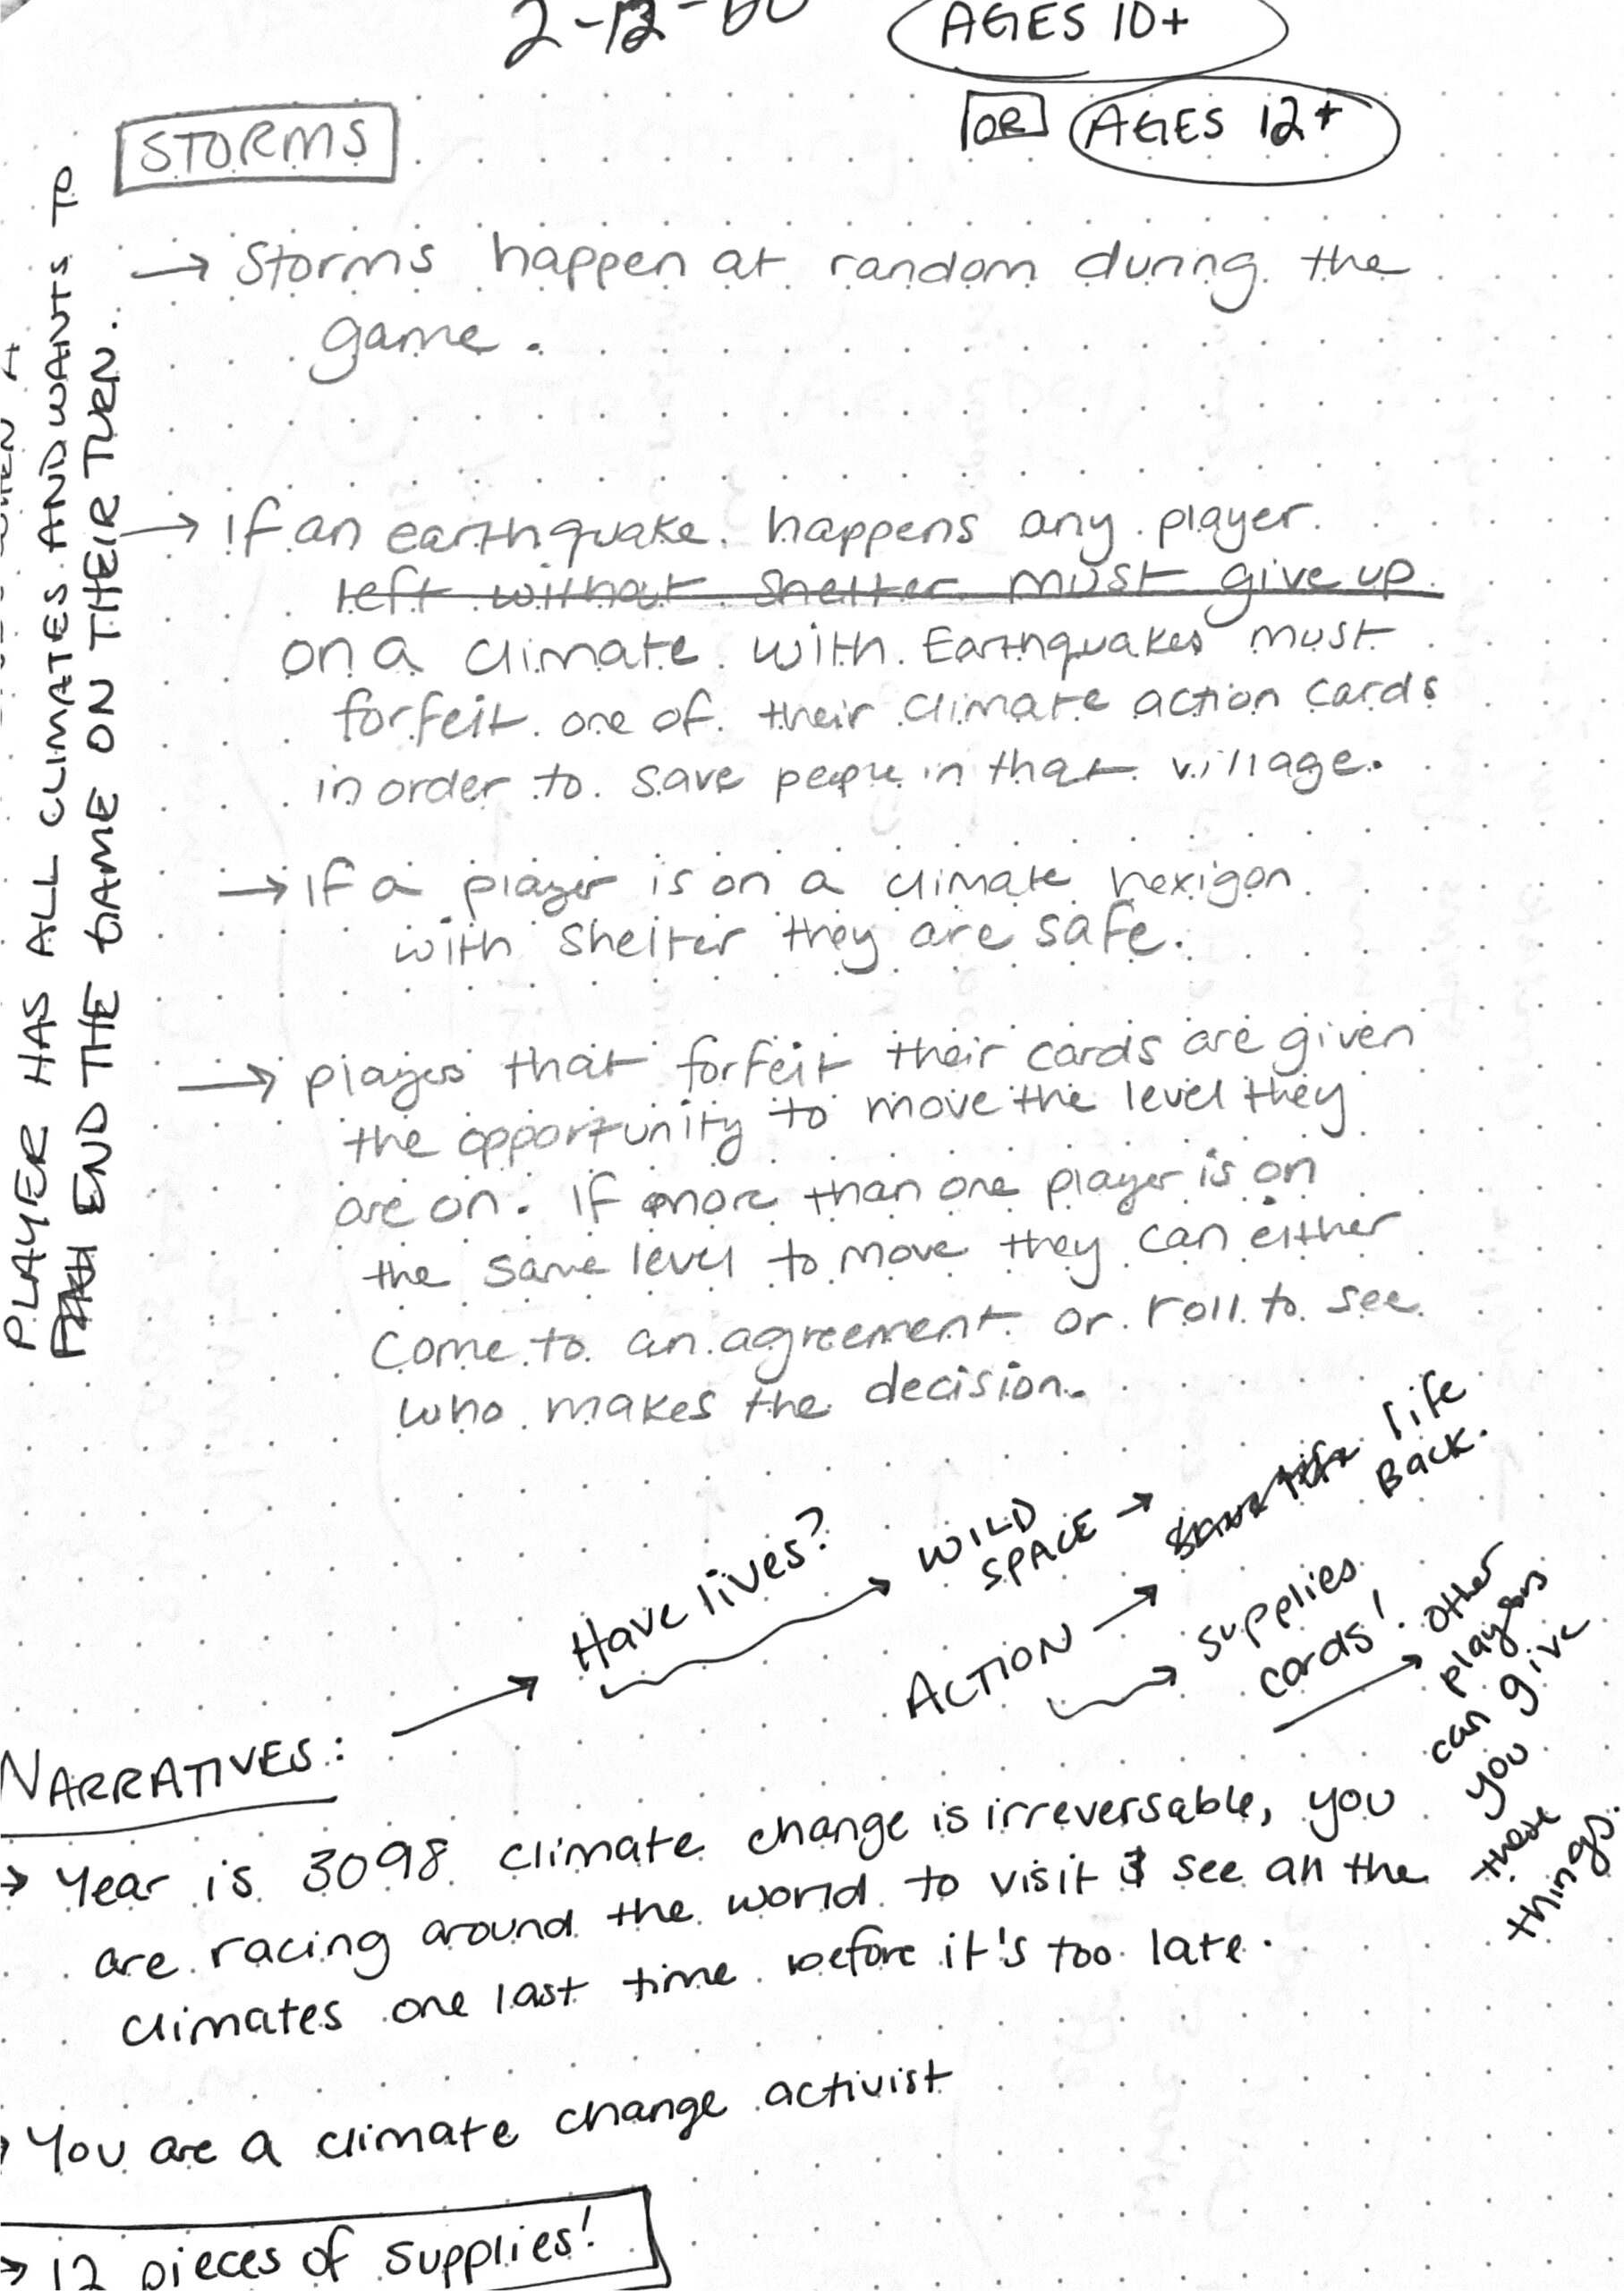 AGES 10+
OR AGES 12+
STORMS
→ Storms happen at random during the
game.
→ If an earthquake happens any player
left without shelter must give up
on a climate with Earthquakes must
forfeit one of their climate action cards
in order to save people in that village.
→ If a player is on a climate hexigon
with shelter they are safe.
→ players that forfeit their cards are given
the opportunity to move the level they
are on. If more than one player is on
the same level to move they can either
come to an agreement or roll to see
who makes the decision.
PLAYER HAS ALL CLIMATES AND WANTS TO
END THE GAME ON THEIR TURN.
NARRATIVES: → Have lives? → WILD
SPACE → life
BACK.
ACTION → supplies
cards! → other
players
can give
you
these
things.
→ Year is 3098 climate change is irreversable, you
are racing around the world to visit & see all the
climates one last time before it's too late.
→ You are a climate change activist
→ 12 pieces of supplies!